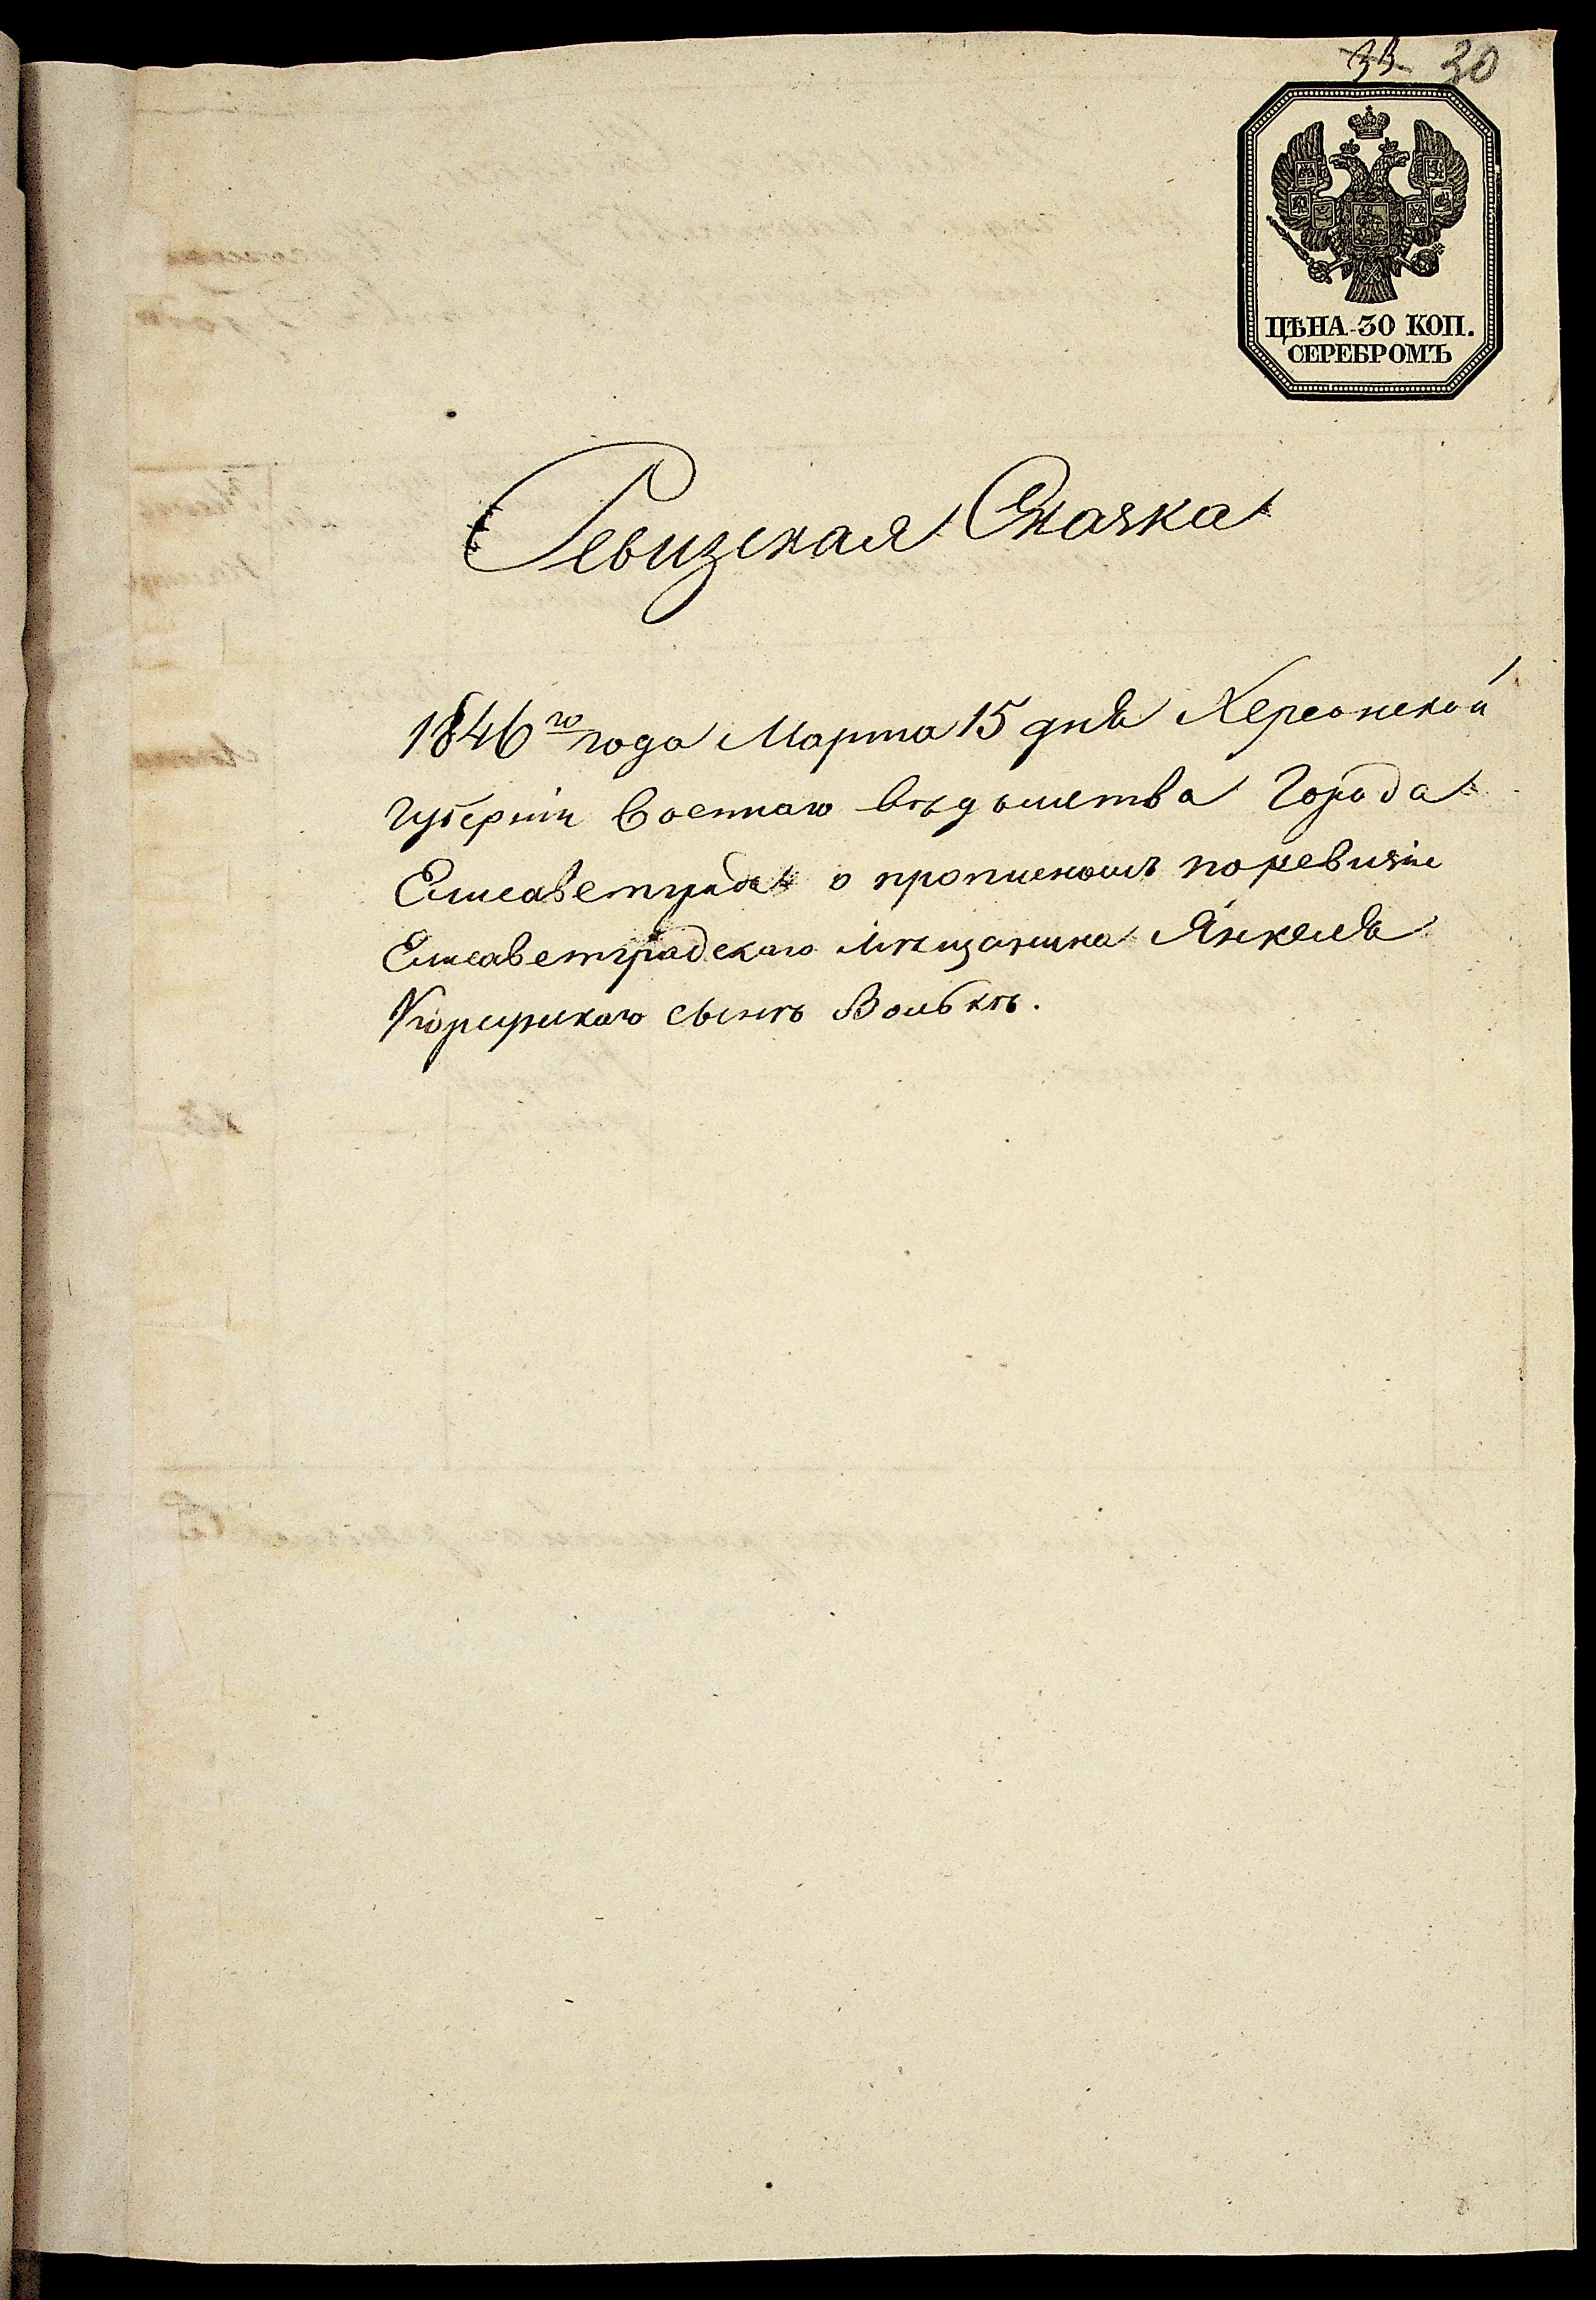 33 30
ЦѢНА 30 КОП.
СЕРЕБРОМЪ
Ревизская Сказка
1846го года Марта 15 дня Херсонской
Губерніи Военнаго вѣдомства Города
Елисаветграда о пропискомъ поревизіи
Елисаветградскаго мѣщанина Янкеля
сынѣ Волькѣ.